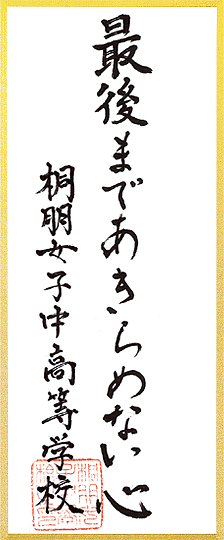 最後まであきらめない心
桐朋女子中高等学校